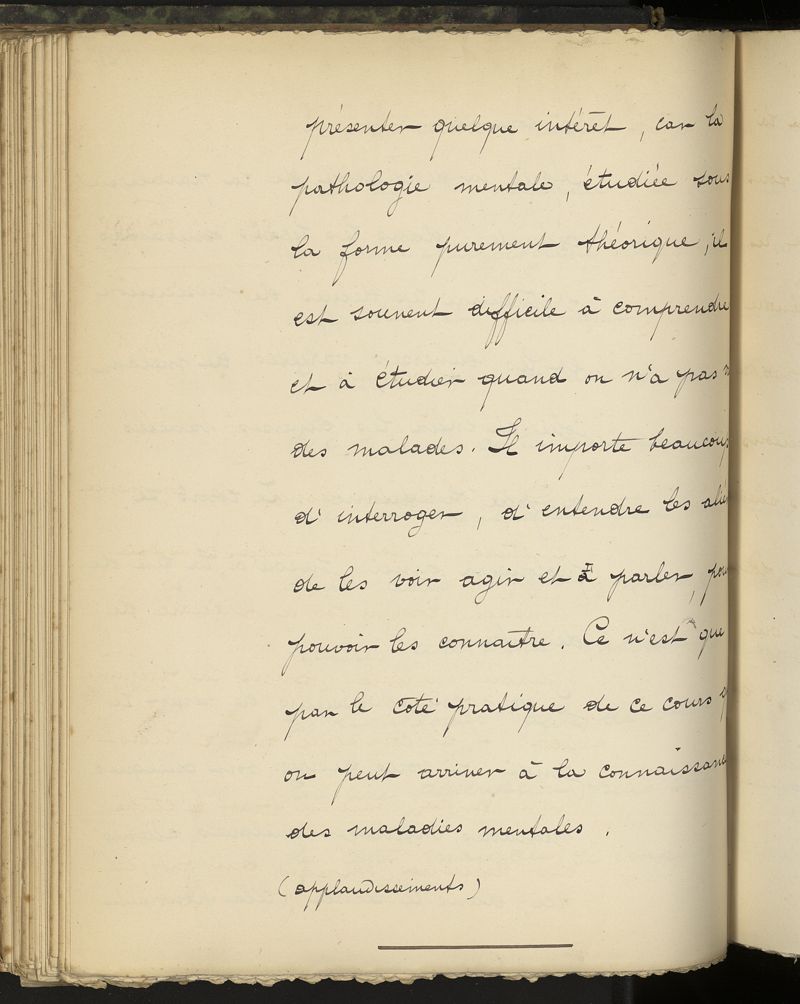 présenter quelque intérêt, car la
pathologie mentale, étudiée sous
la forme purement théorique, il
est souvent difficile à comprendre
et à étudier quand on n'a pas
des malades. Il importe beaucoup
d'interroger, d'entendre les
de les voir agir et parler,
pouvoir les connaître. Ce n'est que
par le côté pratique de ce cours
on peut arriver à la
des maladies mentales.
(applaudissements)